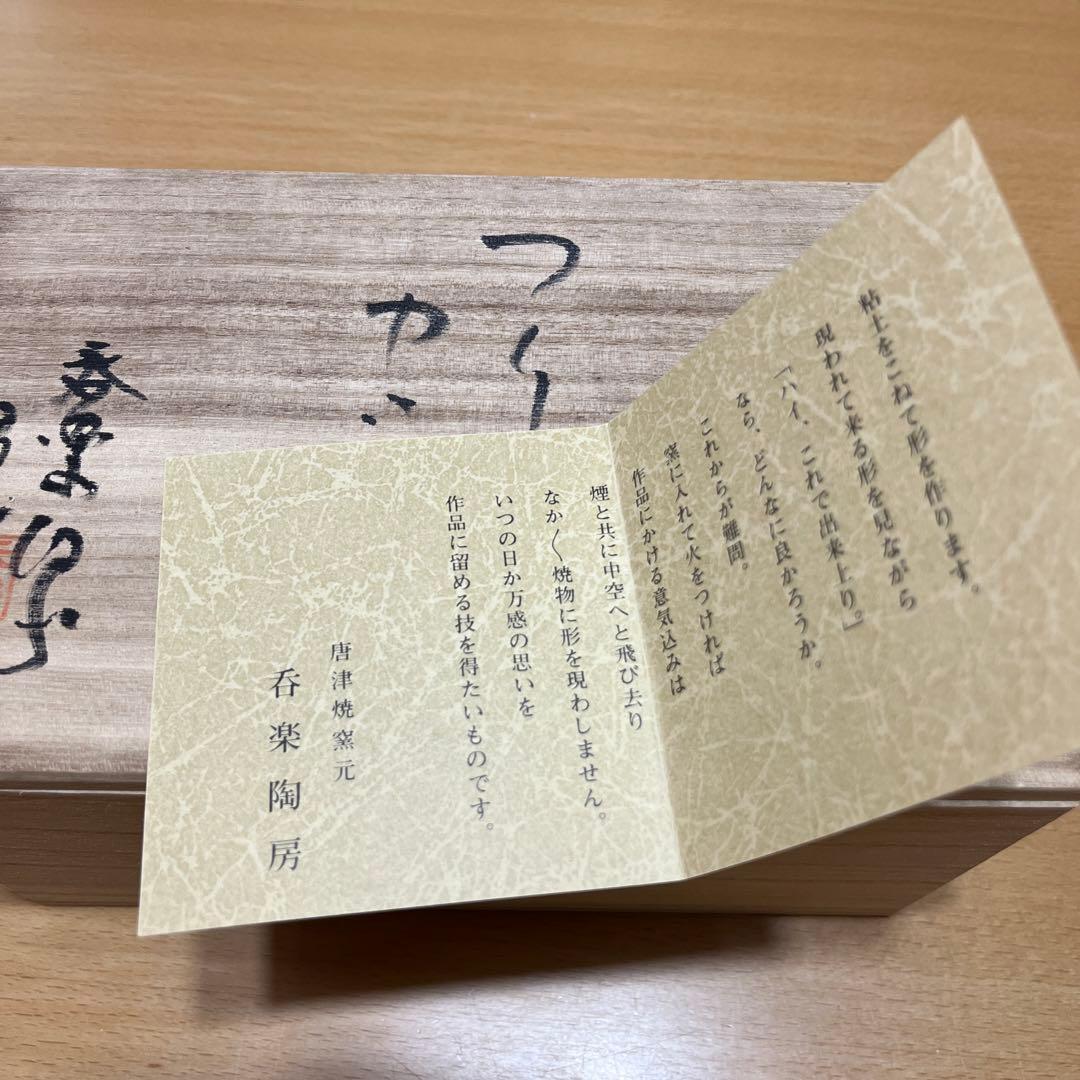 粘土をこねて形を作ります。
現われて来る形を見ながら
「ハイ、これで出来上り。」
なら、どんなに良かろうか。
これからが難問。
窯に入れて火をつければ
作品にかける意気込みは
煙と共に中空へと飛び去り
なか〱焼物に形を現わしません。
いつの日か万感の思いを
作品に留める技を得たいものです。
唐津焼窯元
呑楽陶房
つく
呑楽